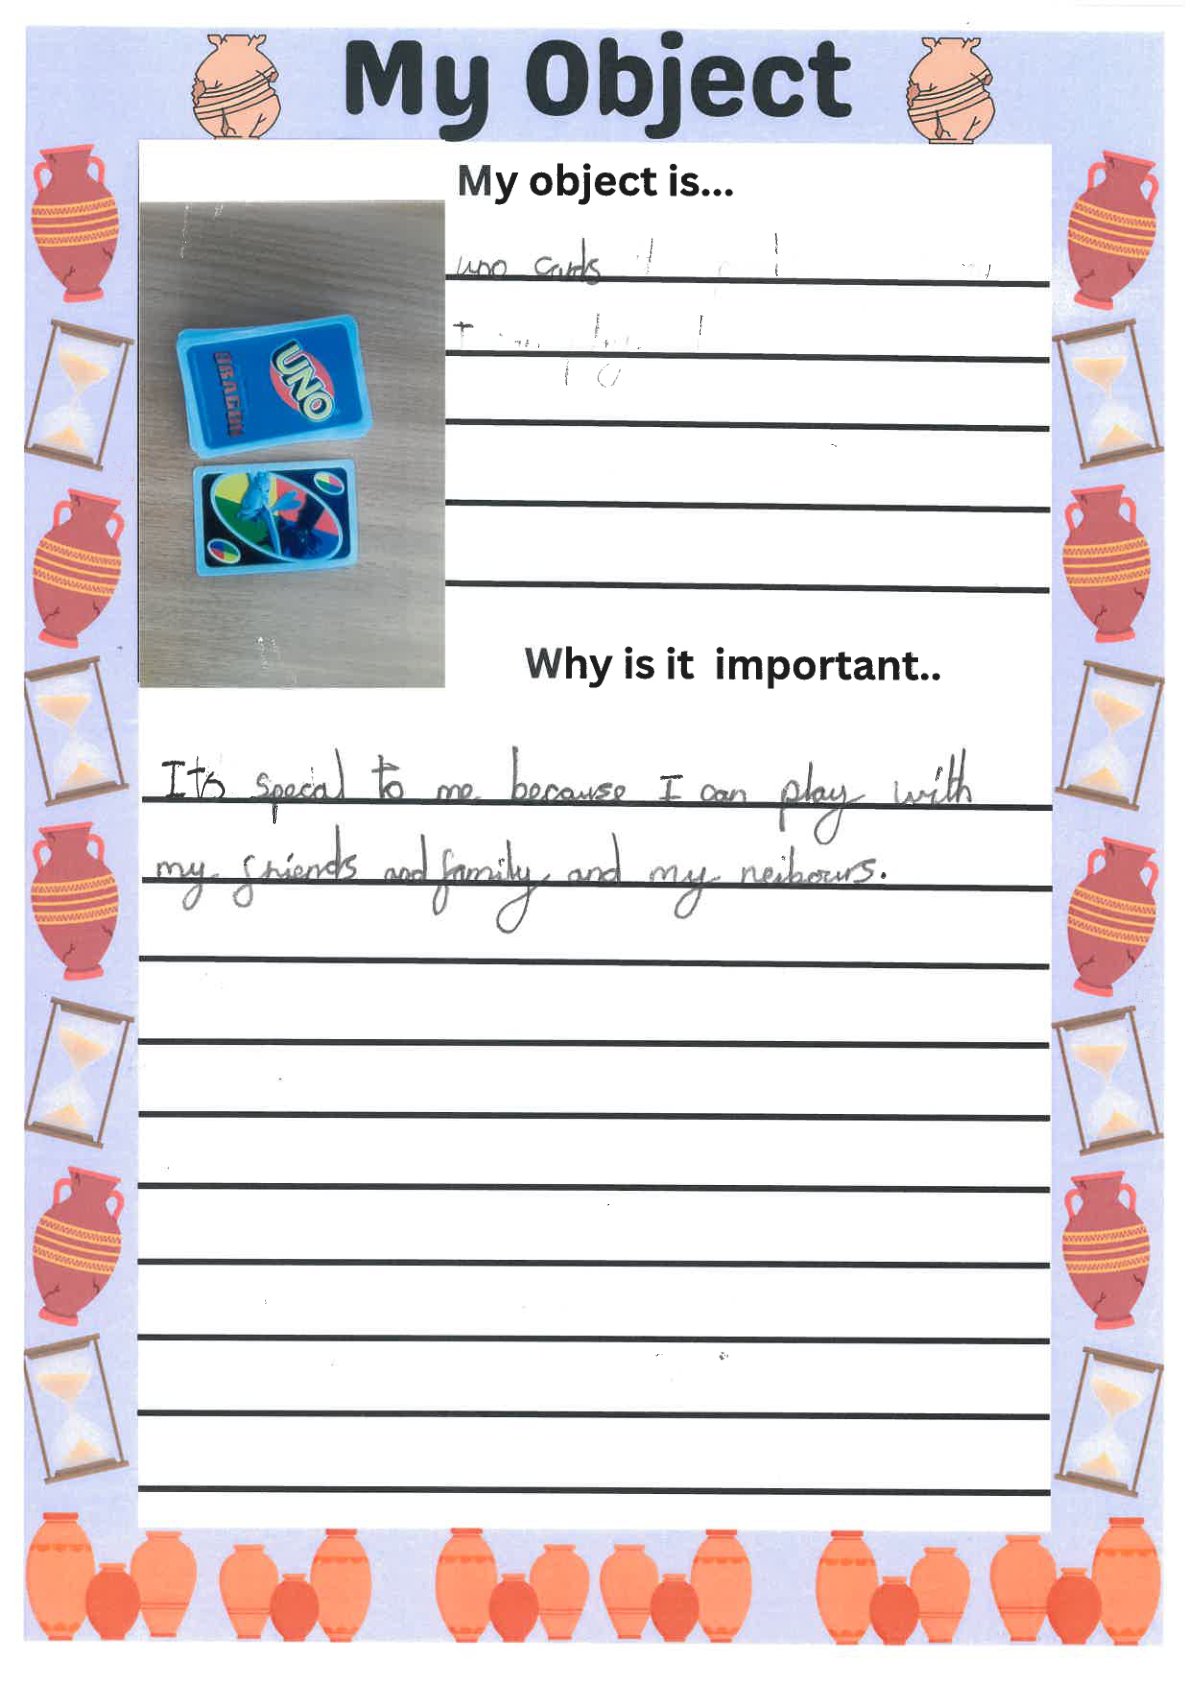 My Object
My object is...
uno cards
UNO
DRAGON
Why is it important..
It's special to me because I can play with
my friends and family and my neibours.